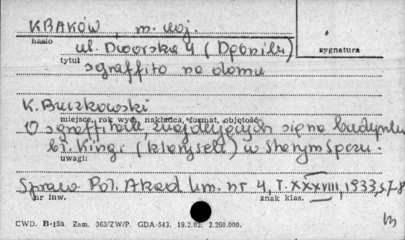 KRAKÓW, m. woj.
hasło
ul. Dworska 4 (Dębniki)
sygnatura
tytuł
sgraffito na domu
K. Buczkowski
miejsce, rok wyd., nakładca, format, objętość
O sgraffitach znajdujących się na budynku
bł. Kingi (klarysek) w Starym Sączu.
uwagi:
Spraw. Pol. Akad. Um. nr 4, T. XXXVIII, 1933, s. 7-8
nr inw.
znak klas.
CWD. B-15a. Zam. 363/ZW/P. GDA-543. 19.2.62. 2.260.000.